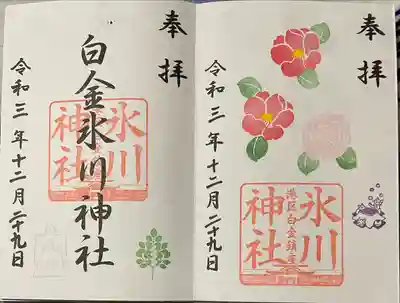 奉拝
令和三年十二月二十九日
氷川神社
港区白金鎮座
奉拝
白金氷川神社
氷川神社
令和三年十二月二十九日